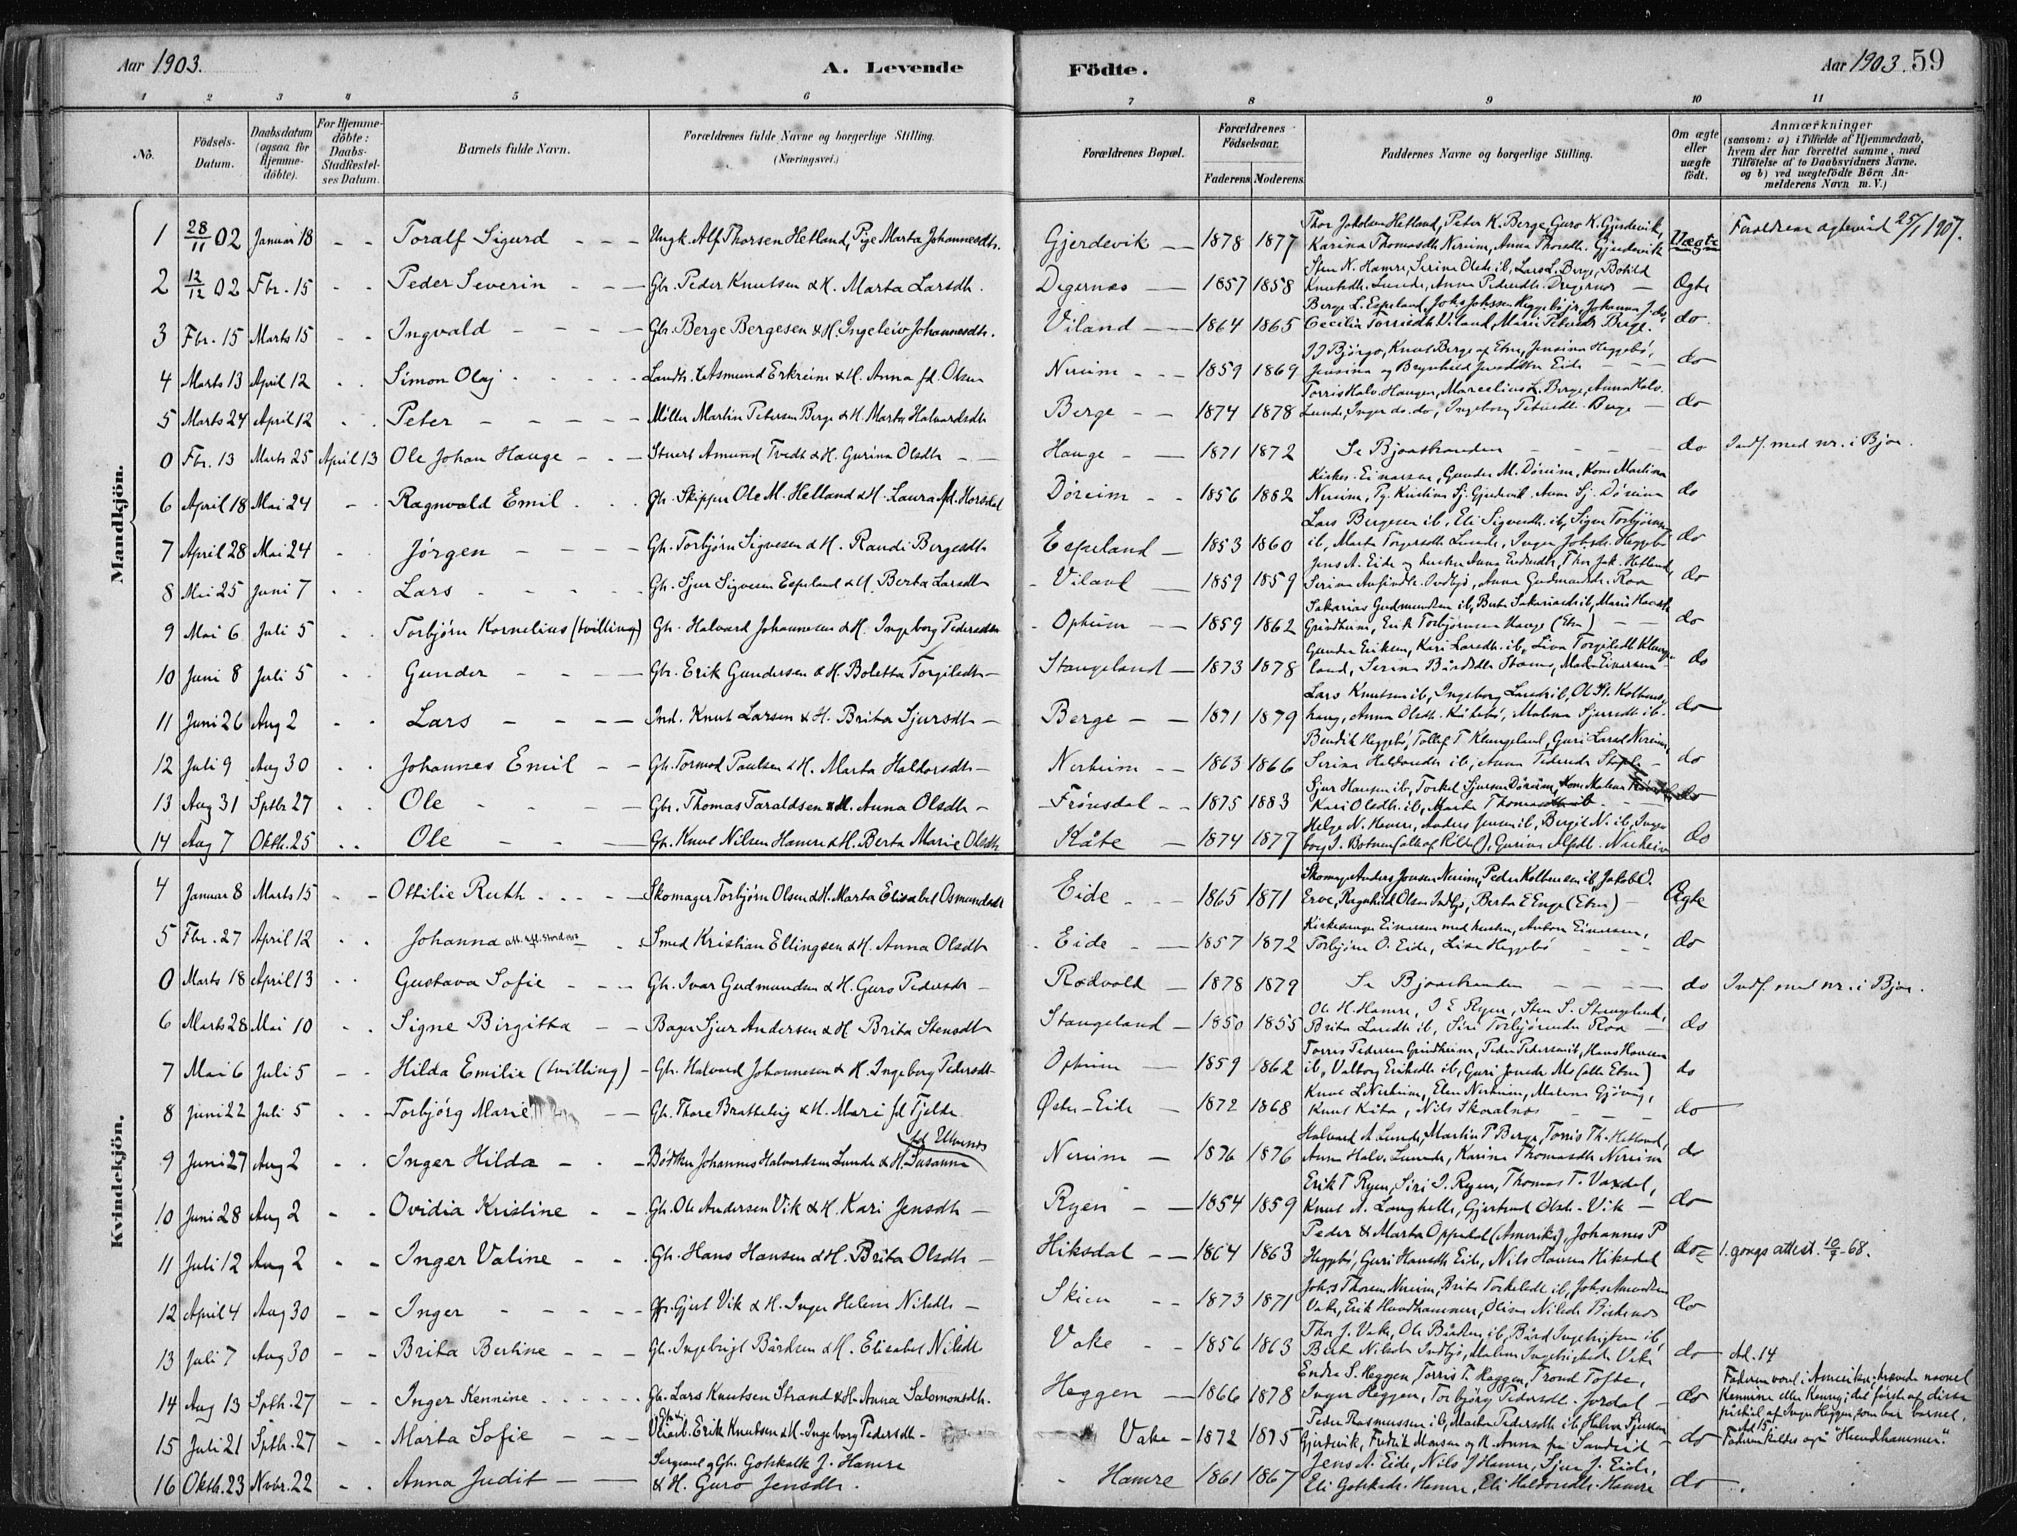 Aar 1903. A. Levende Födte. Aar 1903. 59
1 2 3 4 5 6 7 8 9 10 11
No. Födsels-Datum. Daabsdatum (ogsaa for Hjemme-döbte). For Hjemme-döbte: Daabs-Stadfæstel-ses Datum. Barnets fulde Navn. Forældrenes fulde Navne og borgerlige Stilling. (Næringsvei.) Forældrenes Bopæl. Forældrenes Födselsaar. Faderens Moderens Faddernes Navne og borgerlige Stilling. Om ægte eller uægte födt. Anmærkninger (saasom: a) i Tilfælde af Hjemmedaab, hvem der har forrettet samme, med Tilföielse af to Daabsvidners Navne. og b) ved uægtefödte Börn An-melderens Navn m. V.)
Mandkjön.
1 28/11 02 Januar 18 - - Toralf Sigurd - - - Ungk. Alf Thorsen Hetland, Pige Marta Johannesdtr. Gjerdevik 1878 1877 Thor Jakobsen Hetland, Peter K. Berge, Guro K. Gjerdevik, Karina Thomasdtr Nerium, Anna Thorsdtr. Gjerdevik Uægte Forældrene ægteviet 25/1 1907.
2 12/12 02 Fbr. 15 - - Peder Severin - - - Gbr. Peder Knutsen & H. Marta Larsdtr. Degernæs 1857 1858 Sten N. Hamre, Serina Olsdtr ib, Lars L. Berge, Botild Knutsdtr. Lunde, Anna Pedersdtr. Degernes Ægte
3 Fbr. 15 Marts 15 - - Ingvald - - - - Gbr. Berge Bergesen & H. Ingeleiv Johannesdtr. Viland 1864 1865 Berge L. Espeland, Johs Johssen Heggebö jr, Johanna J. do, Cecilia Torrisdtr Viland, Marie Petersdtr Berge. do.
4 Marts 13 April 12 . . Simon Olaj . . . . Landh. K. Asmund Erkreim & H. Anna fd. Olsen Nerium - - - 1859 1869 J J Björgo, Knut Berge af Etne, Jensina Heggebö, Jensina og Brynhild Eide do
5 Marts 24 April 12 . . Peter - - - - Möller Martin Petersen Berge & H. Marta Halvardsdtr Berge - - 1874 1878 Torris Halv. Haugen, Marcelius L. Berge, Anna Halv. Lunde, Inger do. do, Ingeborg Petersdtr. Berge - do
0 Fbr. 13 Marts 25 April 13 Ole Johan Hauge - - Amund Tvedt & H. Gurina Olsdtr - - Hauge - - 1871 1872 Se Bjoastranden - - - - do Indf. med nr. i Bjoa.
6 April 18 Mai 24 - - Ragnvald Emil . . . Gbr. Skipper Ole M. Hetland & H. Laura fd. Döreim - - 1856 1882 Kirkes. Einarsen, Gunder M. Döreim, Kone Martine Nerium, Pg. Kristine Sj. Gjerdevik, Anna Sj. Döreim do
7 April 28 Mai 24 - Jørgen - - - - Gbr. Torbjörn Sigvesen & H. Randi Bergesdtr. Espeland - 1853 1860 Lars Bergesen ib, Eli Sigvesdtr. ib, Signe Torbjörnsd ib, Marta Torgersdtr Lunde, Inger Johsdtr Heggebö do
8 Mai 25 Juni 7 . . Lars - . - . Gbr. Sjur Sigvesen Espeland & H. Berta Larsdtr - Viland - 1859 1859 Jens A. Eide og hustru Anna, Thor Jak. Hetland, Serina, Anna Gudmundsdtr. Raa do
9 Mai 6 Juli 5 . . Torbjörn Kornelius (tvilling) Gbr. Halvard Johannesen & H. Ingeborg Pedersdtr - Opheim - 1859 1862 Sakarias Gudmundsen ib, Berta Sakariasdtr ib, Marie Grindheim, Erik Torbjörnsen Hauge (Etne) - - do
10 Juni 8 Juli 5 . . Gunder - - - Gbr. Erik Gundersen & H. Boletta Torgilsdtr - Stangeland 1873 1878 Gunder Eriksen, Kari Larsdtr. ib, Liva Torgilsdtr, Serina, Mads Einarsen do
11 Juni 26 Aug 2 - . Lars - - - - Ind. Knut Larsen & H. Brita Sjursdtr - Berge - - 1871 1879 Lars Knutsen ib, Ingeborg Larsdtr ib, Ole, Anna Olsdtr, Malena Sjursdtr ib. do
12 Juli 9 Aug 30 . . Johannes Emil - - Gbr. Tormod Paulsen & H. Marta Haldorsdtr - Nerheim - - 1863 1866 Bendik Heggebö, Tollef T. Klungeland, Guri Larsd Nerium, Serina ib, Anna Pedersdtr do
13 Aug 31 Sptbr. 27 . . Ole - - - - Gbr. Thomas Taraldsen & H. Anna Olsdtr - Frönsdal - 1875 1883 Sjur Hansen ib, Torkel Sjursen Döreim, Kone Malena, Kari Olsdtr. ib, Marta Thomasdtr ib do
14 Aug 7 Oktb. 25 . . Ole - - - Gbr. Knut Nilsen Hamre & H. Berta Marie Olsdtr Kåte 1874 1877 Helge N. Hamre, Anders Jensen ib, Bergit N. ib, Ingeborg J. do
Kvindekjön.
4 Januar 8 Marts 15 - - Ottilie Ruth . . . - Skomager Torbjörn Olsen & H. Marta Elisabet Osmundsdtr Eide - - 1865 1871 Skomag. Anders Jensen Nerium, Peder Kolbensen ib, Jakob O. Erve, Ragnhild Olsen, Berta E Enge (Etne) - Ægte
5 Fbr. 27 April 12 . . Johanna Smed Kristian Ellingsen & H. Anna Olsdtr. - Eide - - 1857 1872 Kirkesanger Einarsen med hustru, Anton Einarsen, Torbjörn O. Eide, Lisa Heggebö - - - do
0 Marts 18 April 13 . . Gustava Sofie - - - Gbr. Ivar Gudmundsen & H. Guro Pedersdtr - Rødvold - 1878 1879 Se Bjoastranden - - - - do Indf. med nr. i Bjoa.
6 Marts 28 Mai 10 . . Signe Birgitta - - Bager Sjur Andersen & H. Brita Stensdtr Stangeland - 1850 1855 Ole H. Hamre, J E Ryen, Sten S. Stangeland, Brita Larsdtr ib, Siri Torbjörnsdtr Raa - do
7 Mai 6 Juli 5 - - Hilda Emilie (tvilling) - Gbr. Halvard Johannesen & H. Ingeborg Pedersdtr Opheim - 1859 1862 Torris Pedersen Grindheim, Peder Pedersen ib, Hans Hansen ib, Valborg Eriksdtr ib, Guri Jonsdtr Mo (alle Etne) do
8 Juni 22 Juli 5 . . Torbjörg Marie - - Gbr. Thore Bratteteig & H. Mari fd Tjelde Øster-Eide - 1872 1868 Knut L Nerheim, Elen Nerheim, Malena Gjövåg, Knut Kåte, Nils Skoralnes - - do
9 Juni 27 Aug 2 . . Inger Hilda - . - Bødker Johannes Halvardsen Lunde & H. Susanna fd Utvenes Nerium - - 1876 1876 Halvard A Lunde, Martin P Berge, Torris Th. Hetland, Anna Halv. Lunde, Karina Thomasdtr Nerium do
10 Juni 28 Aug 2 - - Ovidia Kristine - - Gbr. Ole Andersen Vik & H. Kari Jensdtr - Ryen - - 1854 1859 Erik T Ryen, Siri I. Ryen, Thomas T. Vaxdal, Knut A. Langhelle, Gjertrud Olsdtr. Vik - do
11 Juli 12 Aug 2 - - Inger Valine - - Gbr. Hans Hansen & H. Brita Olsdtr - Hiksdal - - 1864 1863 Peder & Marta Oppedal (Amerika), Johannes P Heggebö, Guri Hansdtr Eide, Nils Hansen Hiksdal do 1. gongs attest. 10/9-68.
12 April 4 Aug 30 - - Inger - - - - Gbr. Gjert Vik & H. Inger Helene Nilsdtr - Skien - - 1873 1871 Johs Thorsen Nerium, Brita Torkelsdtr ib, Johs Amundsen Vake, Erik Hundhammer, Olina Nilsdtr do
13 Juli 7 Aug 30 - - Brita Bertine - - - Gbr. Ingebrigt Bårdsen & H. Elisabet Nilsdtr Vake - - 1856 1863 Thor J. Vake, Ole Bårdsen ib, Bård Ingebrigtsen ib, Berta Nilsdtr, Malene Ingebrigtsdtr Vake do
14 Aug 13 Sptb. 27 - - Inger Kennine . . . . Gbr. Lars Knutsen Strand & H. Anna Salomonsdtr. Heggen - 1866 1878 Endre S. Heggen, Torris T. Heggen, Trond Tofte, Inger Heggen, Torbjörg Pedersdtr. Jordal - do Ad. 14 Faderen var i Amerika; krævede navnet Kennine eller Kenny; det først af disse påskrel af Inger Heggen, som bar barnet.
15 Juli 21 Sptb. 27 - - Marta Sofie - - - Erik Knutsen & H. Ingeborg Pedersdtr - Vake - 1872 1875 Peder Rasmussen ib, Marta Pedersdtr ib, Helene Sjursen Gjerdevik, Fredrik Hansen og H. Anna fra Sandvik - do Ad 15 Faderen kaldes også "Hundhammer".
16 Oktb. 23 Novbr. 22 - . Anna Judit - - Sergeant og Gbr. Gotskalk J. Hamre & H. Guro Jensdtr. - Hamre 1861 1867 Jens A. Eide, Nils J Hamre, Sjur J. Eide, Eli Gotskalksdtr. Hamre, Eli Haldorsdtr. Hamre do